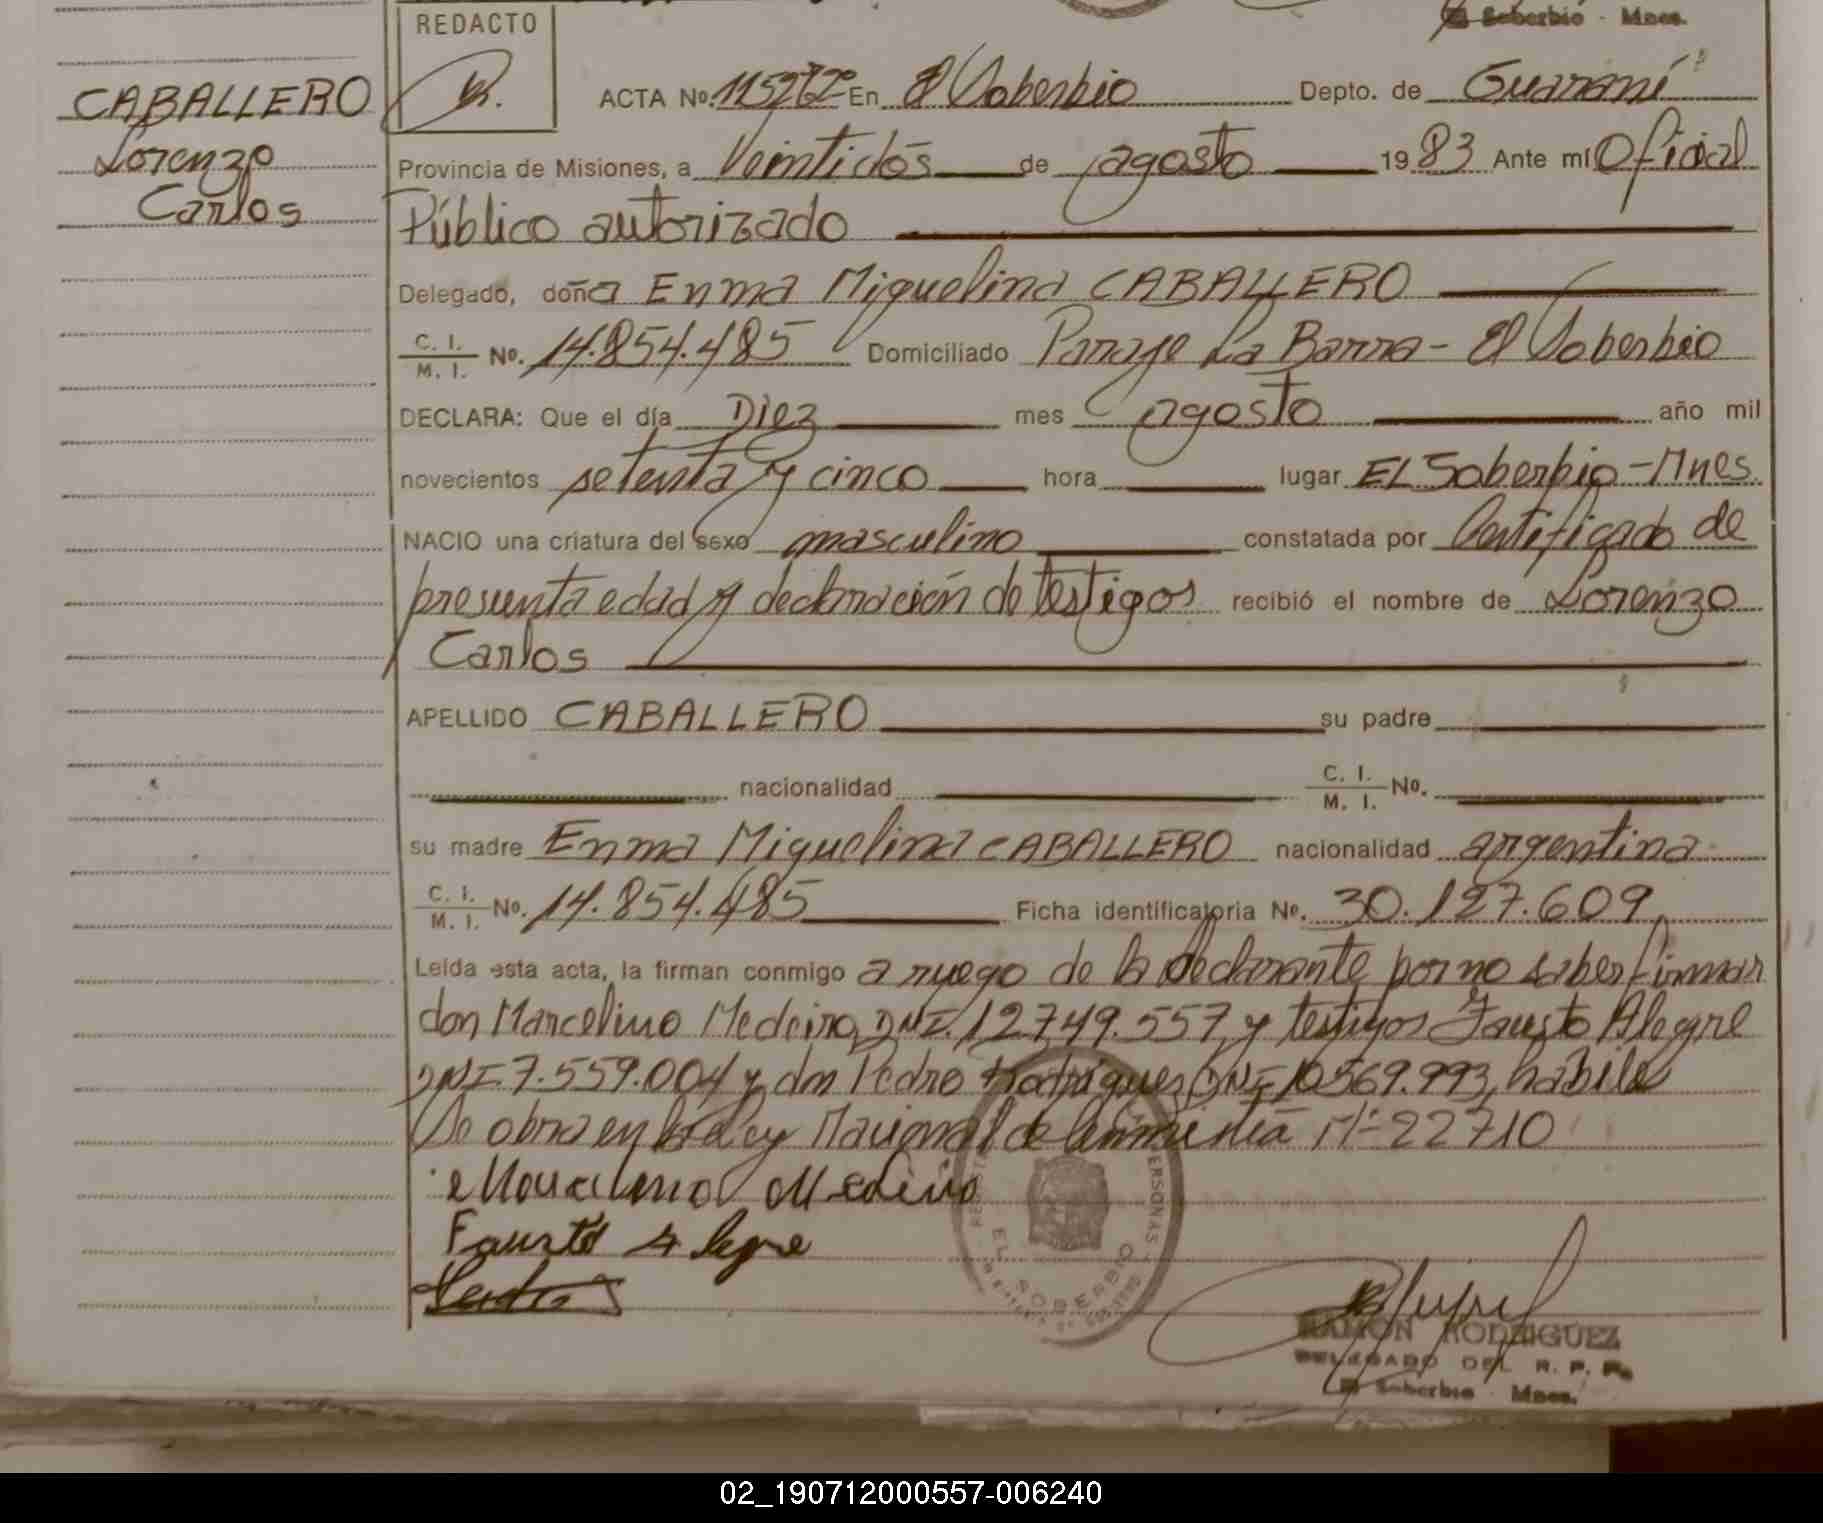 El Soberbio - Mnes.
REDACTO
CABALLERO
Lorenzo
Carlos
ACTA Nº. En El Soberbio Depto. de Guaraní
Provincia de Misiones, a Veintidós de agosto 1983 Ante mí Oficial
Público autorizado
Delegado, doña Enma Miguelina CABALLERO
C. I.
M. I. Nº. 14.854.485 Domiciliado Paraje La Barra - El Soberbio
DECLARA: Que el día Diez mes agosto año mil
novecientos setenta y cinco hora lugar EL Soberbio - Mnes.
NACIO una criatura del sexo masculino constatada por Certificado de
presunta edad y declaración de testigos recibió el nombre de Lorenzo
Carlos
APELLIDO CABALLERO su padre
nacionalidad C. I.
M. I. Nº.
su madre Enma Miguelina CABALLERO nacionalidad argentina
C. I.
M. I. Nº. 14.854.485 Ficha identificatoria Nº. 30.127.609
Leída esta acta, la firman conmigo a ruego de la declarante por no saber firmar
don Marcelino Medeiro, DNI. 12.749.557, y testigos Fausto Alegre
DNI 7.559.004 y don Pedro Rodriguez, DNI 10.569.993, hábiles
Se obra en Ley Nacional de amnistía Nº 22710
Marcelino Medeiro
Fausto Alegre
EL SOBERBIO
RAMÓN RODRIGUEZ
DELEGADO DEL R. P. P.
El Soberbio - Mnes.
02_190712000557-006240